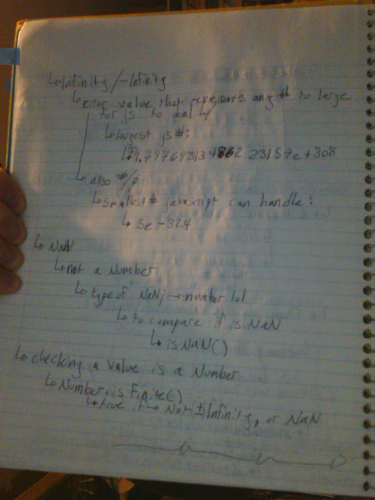 ↳ Infinity / -Infinity
↳ error value that represents any # to large
for js to deal w/
↳ largest js #:
↳ 1.7976931348623157e+308
↳ also #/0
↳ smallest # javascript can handle:
↳ 5e-324
↳ NaN
↳ not a Number
↳ typeof NaN; → number lol
↳ to compare if is NaN
↳ isNaN()
↳ checking a value is a Number
↳ Number.isFinite()
↳ true if → Not (±) Infinity, or NaN